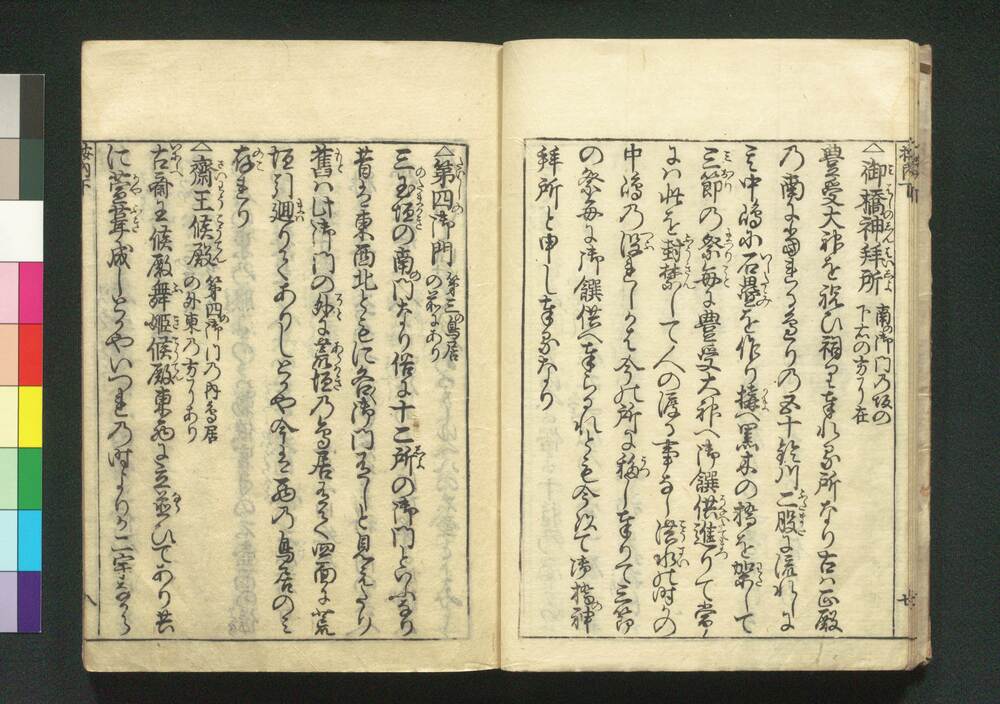 △御橋神拝所 南の御門乃坂の
下右の方に在
豊受大神を祝ひ祠り奉れる所なり古ハ正殿
乃南に当れる辺り乃五十鈴川二股に流れしに
其中嶋に石畳を作り構へ黒木の橋を架して
三節の祭毎に豊受大神へ御饌供進りて常
にハ此を封禁して人の渡る事なし洪水の時かの
中嶋乃没れしかは今の所に移し奉りて三節
の祭毎に御饌供へ奉らるれとも今以て御橋神
拝所と申し奉るなり
△第四御門 第三鳥居
の前にあり
三玉垣の南門なり俗に十二所の御門といふなり
昔は東西北ともに各御門有しと見えたり
舊ハ此御門の外に荒垣乃鳥居有て四面に荒
垣引廻りてありしとや今は西乃鳥居のミ
存れり
△齋王候殿 第四御門乃内鳥居
の外東乃方にあり
古斎王候殿舞姫候殿東西に立並ひてあり共
に萱葺成しとかやいつれ乃時よりか二宇